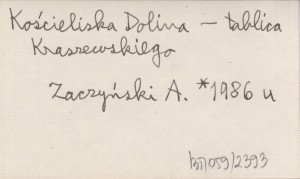 Kościeliska Dolina – tablica
Kraszewskiego
Zaczyński A. *1986 u
BT/059/2393